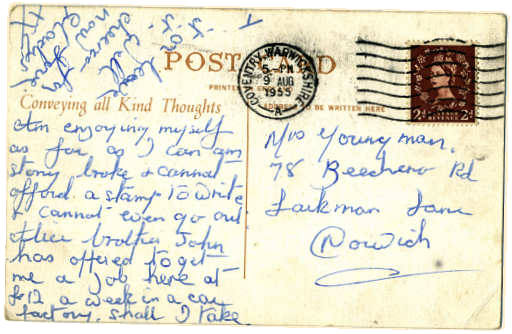 POST CARD
PRINTED
ADDRESS TO BE WRITTEN HERE
Conveying all Kind Thoughts
COVENTRY, WARWICKSHIRE
5 - PM
9 AUG
1955
A
2d 2d
Am enjoying myself
as far as I can am
stony broke & cannot
afford a stamp to write
& cannot even go out
other brother John
has offered to get
me a job here at
£12 a week in a car
factory, shall I take
it or leave
it
cheerio
now
for
Mrs Youngman,
78 Beecheno Rd
Larkman Lane
Norwich